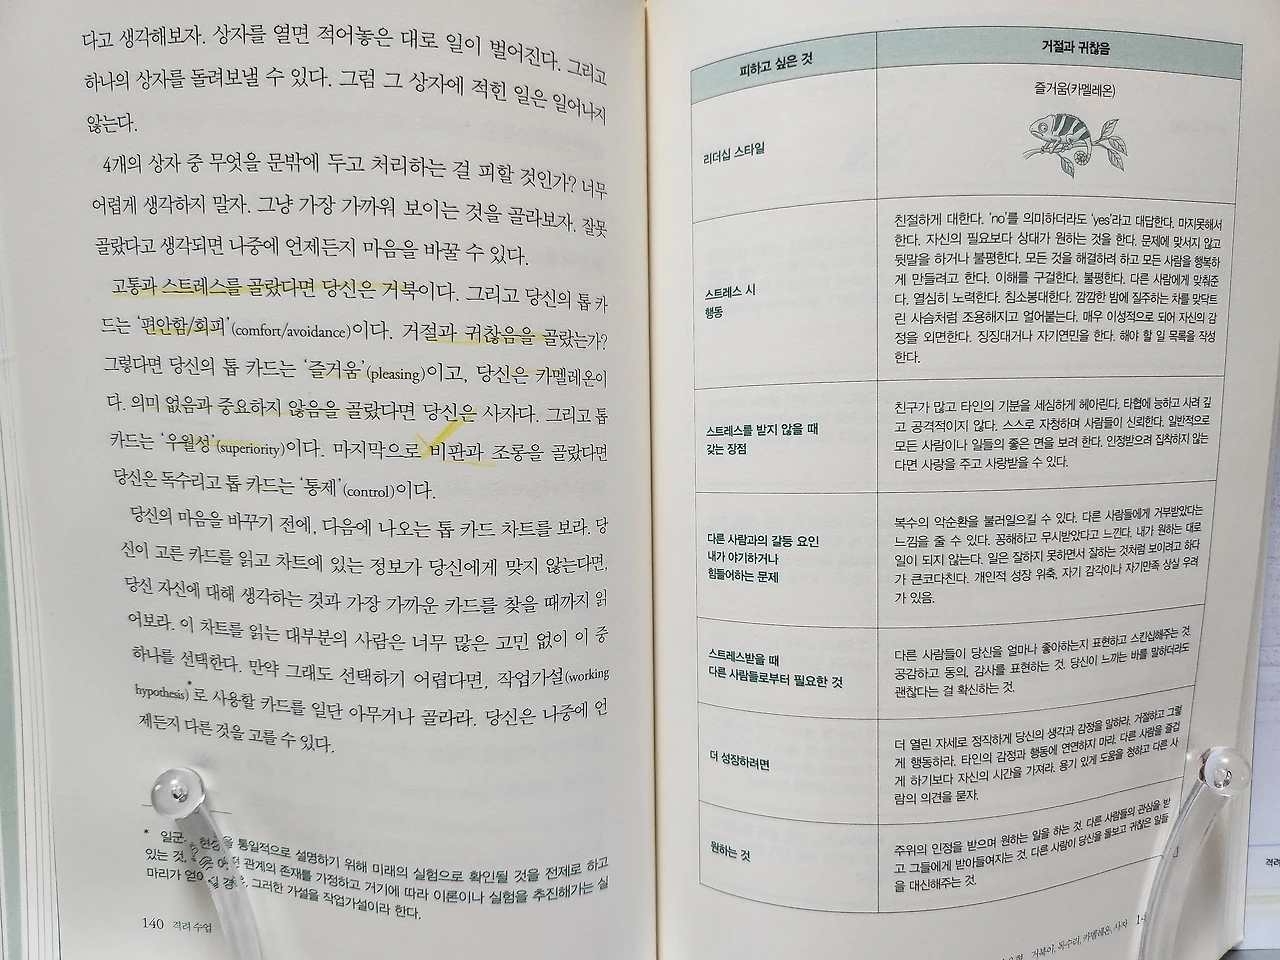 다고 생각해보자. 상자를 열면 적어놓은 대로 일이 벌어진다. 그리고
하나의 상자를 돌려보낼 수 있다. 그럼 그 상자에 적힌 일은 일어나지
않는다.
4개의 상자 중 무엇을 문밖에 두고 처리하는 걸 피할 것인가? 너무
어렵게 생각하지 말자. 그냥 가장 가까워 보이는 것을 골라보자. 잘못
골랐다고 생각되면 나중에 언제든지 마음을 바꿀 수 있다.
고통과 스트레스를 골랐다면 당신은 거북이다. 그리고 당신의 톱 카
드는 ‘편안함/회피’(comfort/avoidance)이다. 거절과 귀찮음을 골랐는가?
그렇다면 당신의 톱 카드는 ‘즐거움’(pleasing)이고, 당신은 카멜레온이
다. 의미 없음과 중요하지 않음을 골랐다면 당신은 사자다. 그리고 톱
카드는 ‘우월성’(superiority)이다. 마지막으로 비판과 조롱을 골랐다면
당신은 독수리고 톱 카드는 ‘통제’(control)이다.
당신의 마음을 바꾸기 전에, 다음에 나오는 톱 카드 차트를 보라. 당
신이 고른 카드를 읽고 차트에 있는 정보가 당신에게 맞지 않는다면,
당신 자신에 대해 생각하는 것과 가장 가까운 카드를 찾을 때까지 읽
어보라. 이 차트를 읽는 대부분의 사람은 너무 많은 고민 없이 이 중
하나를 선택한다. 만약 그래도 선택하기 어렵다면, 작업가설(working
hypothesis)*로 사용할 카드를 일단 아무거나 골라라. 당신은 나중에 언
제든지 다른 것을 고를 수 있다.
* 일군 현상을 통일적으로 설명하기 위해 미래의 실험으로 확인될 것을 전제로 하고
있는 것, 관계의 존재를 가정하고 거기에 따라 이론이나 실험을 추진해가는 실
마리가 얻어 그러한 가설을 작업가설이라 한다.
140 격려 수업
피하고 싶은 것
거절과 귀찮음
리더십 스타일
즐거움(카멜레온)
스트레스 시
행동
친절하게 대한다. ‘no’를 의미하더라도 ‘yes’라고 대답한다. 마지못해서
한다. 자신의 필요보다 상대가 원하는 것을 한다. 문제에 맞서지 않고
뒷말을 하거나 불평한다. 모든 것을 해결하려 하고 모든 사람을 행복하
게 만들려고 한다. 이해를 구걸한다. 불평한다. 다른 사람에게 맞춰준
다. 열심히 노력한다. 침소봉대한다. 깜깜한 밤에 질주하는 차를 맞닥트
린 사슴처럼 조용해지고 얼어붙는다. 매우 이성적으로 되어 자신의 감
정을 외면한다. 징징대거나 자기연민을 한다. 해야 할 일 목록을 작성
한다.
스트레스를 받지 않을 때
갖는 장점
친구가 많고 타인의 기분을 세심하게 헤아린다. 타협에 능하고 사려 깊
고 공격적이지 않다. 스스로 자청하며 사람들이 신뢰한다. 일반적으로
모든 사람이나 일들의 좋은 면을 보려 한다. 인정받으려 집착하지 않는
다면 사랑을 주고 사랑받을 수 있다.
다른 사람과의 갈등 요인
내가 야기하거나
힘들어하는 문제
복수의 악순환을 불러일으킬 수 있다. 다른 사람들에게 거부받았다는
느낌을 줄 수 있다. 꽁해하고 무시받았다고 느낀다. 내가 원하는 대로
일이 되지 않는다. 일은 잘하지 못하면서 잘하는 것처럼 보이려고 하다
가 큰코다친다. 개인적 성장 위축, 자기 감각이나 자기만족 상실 우려
가 있음.
스트레스받을 때
다른 사람들로부터 필요한 것
다른 사람들이 당신을 얼마나 좋아하는지 표현하고 스킨십해주는 것.
공감하고 동의, 감사를 표현하는 것. 당신이 느끼는 바를 말하더라도
괜찮다는 걸 확신하는 것.
더 성장하려면
더 열린 자세로 정직하게 당신의 생각과 감정을 말하라. 거절하고 그렇
게 행동하라. 타인의 감정과 행동에 연연하지 마라. 다른 사람을 즐겁
게 하기보다 자신의 시간을 가져라. 용기 있게 도움을 청하고 다른 사
람의 의견을 묻자.
원하는 것
주위의 인정을 받으며 원하는 일을 하는 것. 다른 사람들의 관심을 받
고 그들에게 받아들여지는 것. 다른 사람이 당신을 돌보고 귀찮은 일들
을 대신해주는 것.
거북이, 독수리, 카멜레온, 사자
격려